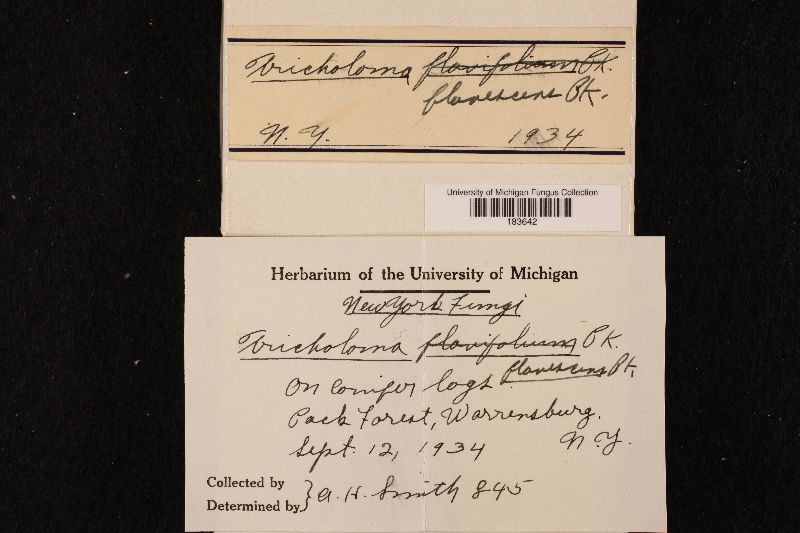 Tricholoma flavifolium Pk.
flavescens Pk.
N. Y. 1934
University of Michigan Fungus Collection
183642
Herbarium of the University of Michigan
New York Fungi
Tricholoma flavifolium Pk.
flavescens Pk.
On conifer logs
Pack Forest, Warrensburg.
Sept. 12, 1934 N. Y.
Collected by
Determined by } A. H. Smith 845